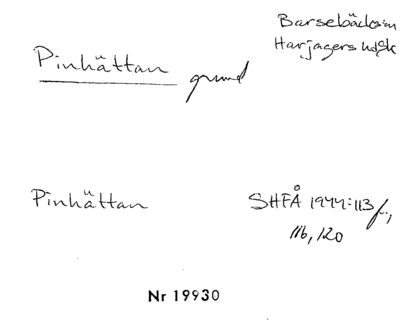 Barsebäcks sn
Harjagers hd Sk
Pinhättan grund
Pinhättan SHFÅ 1944:113 f.,
116, 120
Nr 19930